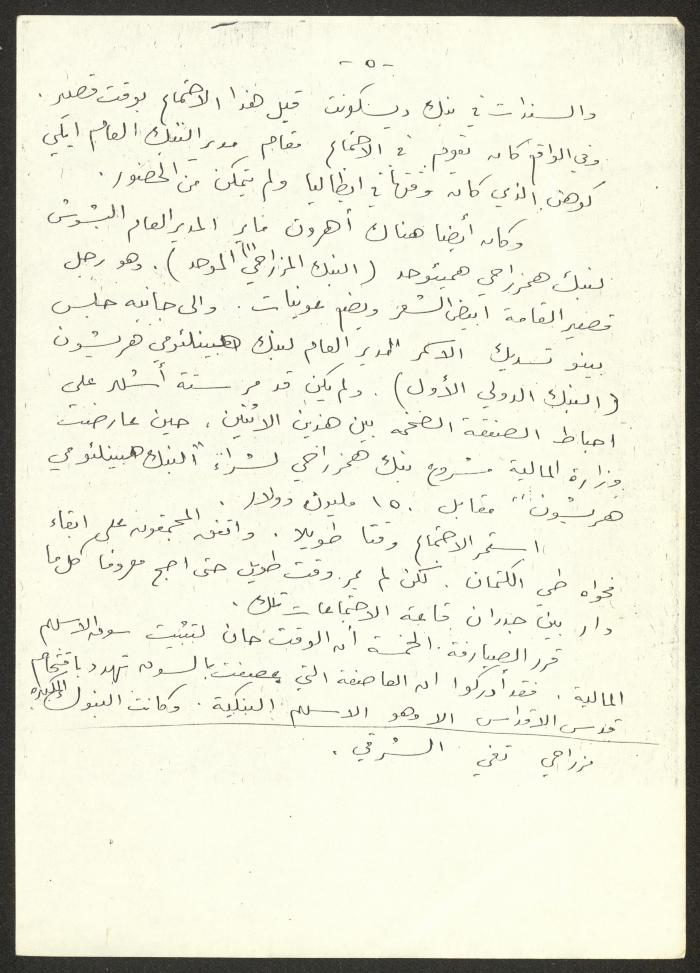 - ٥ -
والسندات في بنك ديسكونت قبل هذا الاجتماع بوقت قصير .
وفي الواقع كان تقويم في الاجتماع مقام مدير البنك العام ايلي
كوهن الذي كان وقتها في ايطاليا ولم يتمكن من الحضور .
وكان أيضا هناك أهرون مائير المدير العام البشوش
لبنك همزراحي همئوحد ( البنك المزراحي الموحد ) . وهو رجل
قصير القامة ابيض الشعر ويضع عوينات . والى جانبه جلس
بينو تسديك الاسمر المدير العام لبنك هبينلئومي هريشون
( البنك الدولي الأول ) . ولم يكن قد مر ستة أشهر على
احباط الصفقة الضخمة بين هذين الاثنين ، حين عارضت
وزارة المالية مشروع بنك همزراحي لشراء " البنك هبينلئومي
هريشون " مقابل ١٥٠ مليون دولار .
استمر الاجتماع وقتا طويلا . واتفق المجتمعون على ابقاء
فحواه طي الكتمان . لكن لم يمر وقت طويل حتى اصبح معروفا كل ما
دار بين جدران قاعة الاجتماعات تلك .
قرر الصيارفة الخمسة أن الوقت حان لتثبيت سوق الاسهم
المالية . فقد أدركوا ان العاصفة التي عصفت بالسوق تهدد باقتحام
قدس الاقداس الا وهو الاسهم البنكية . وكانت البنوك الكبيرة
مزراحي تعني الشرقي .